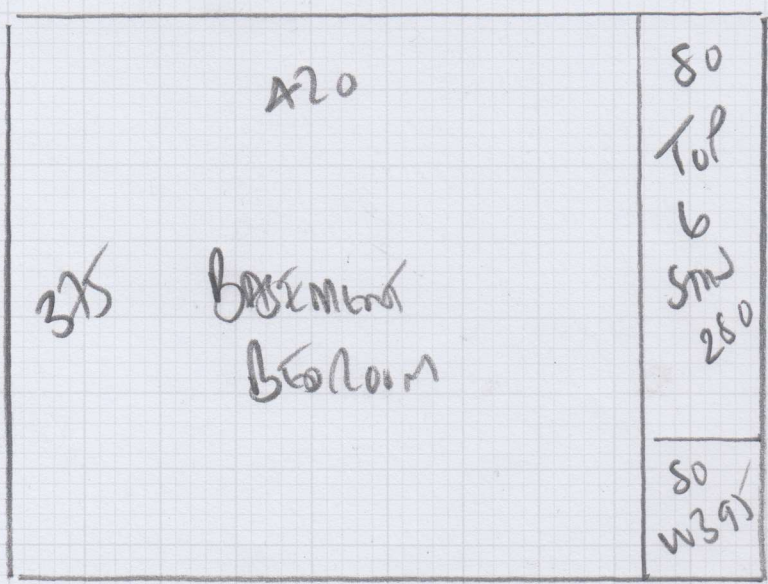 420
375
BASEMENT
BEDROOM
80
TOP
6
STAIR
280
80
W395